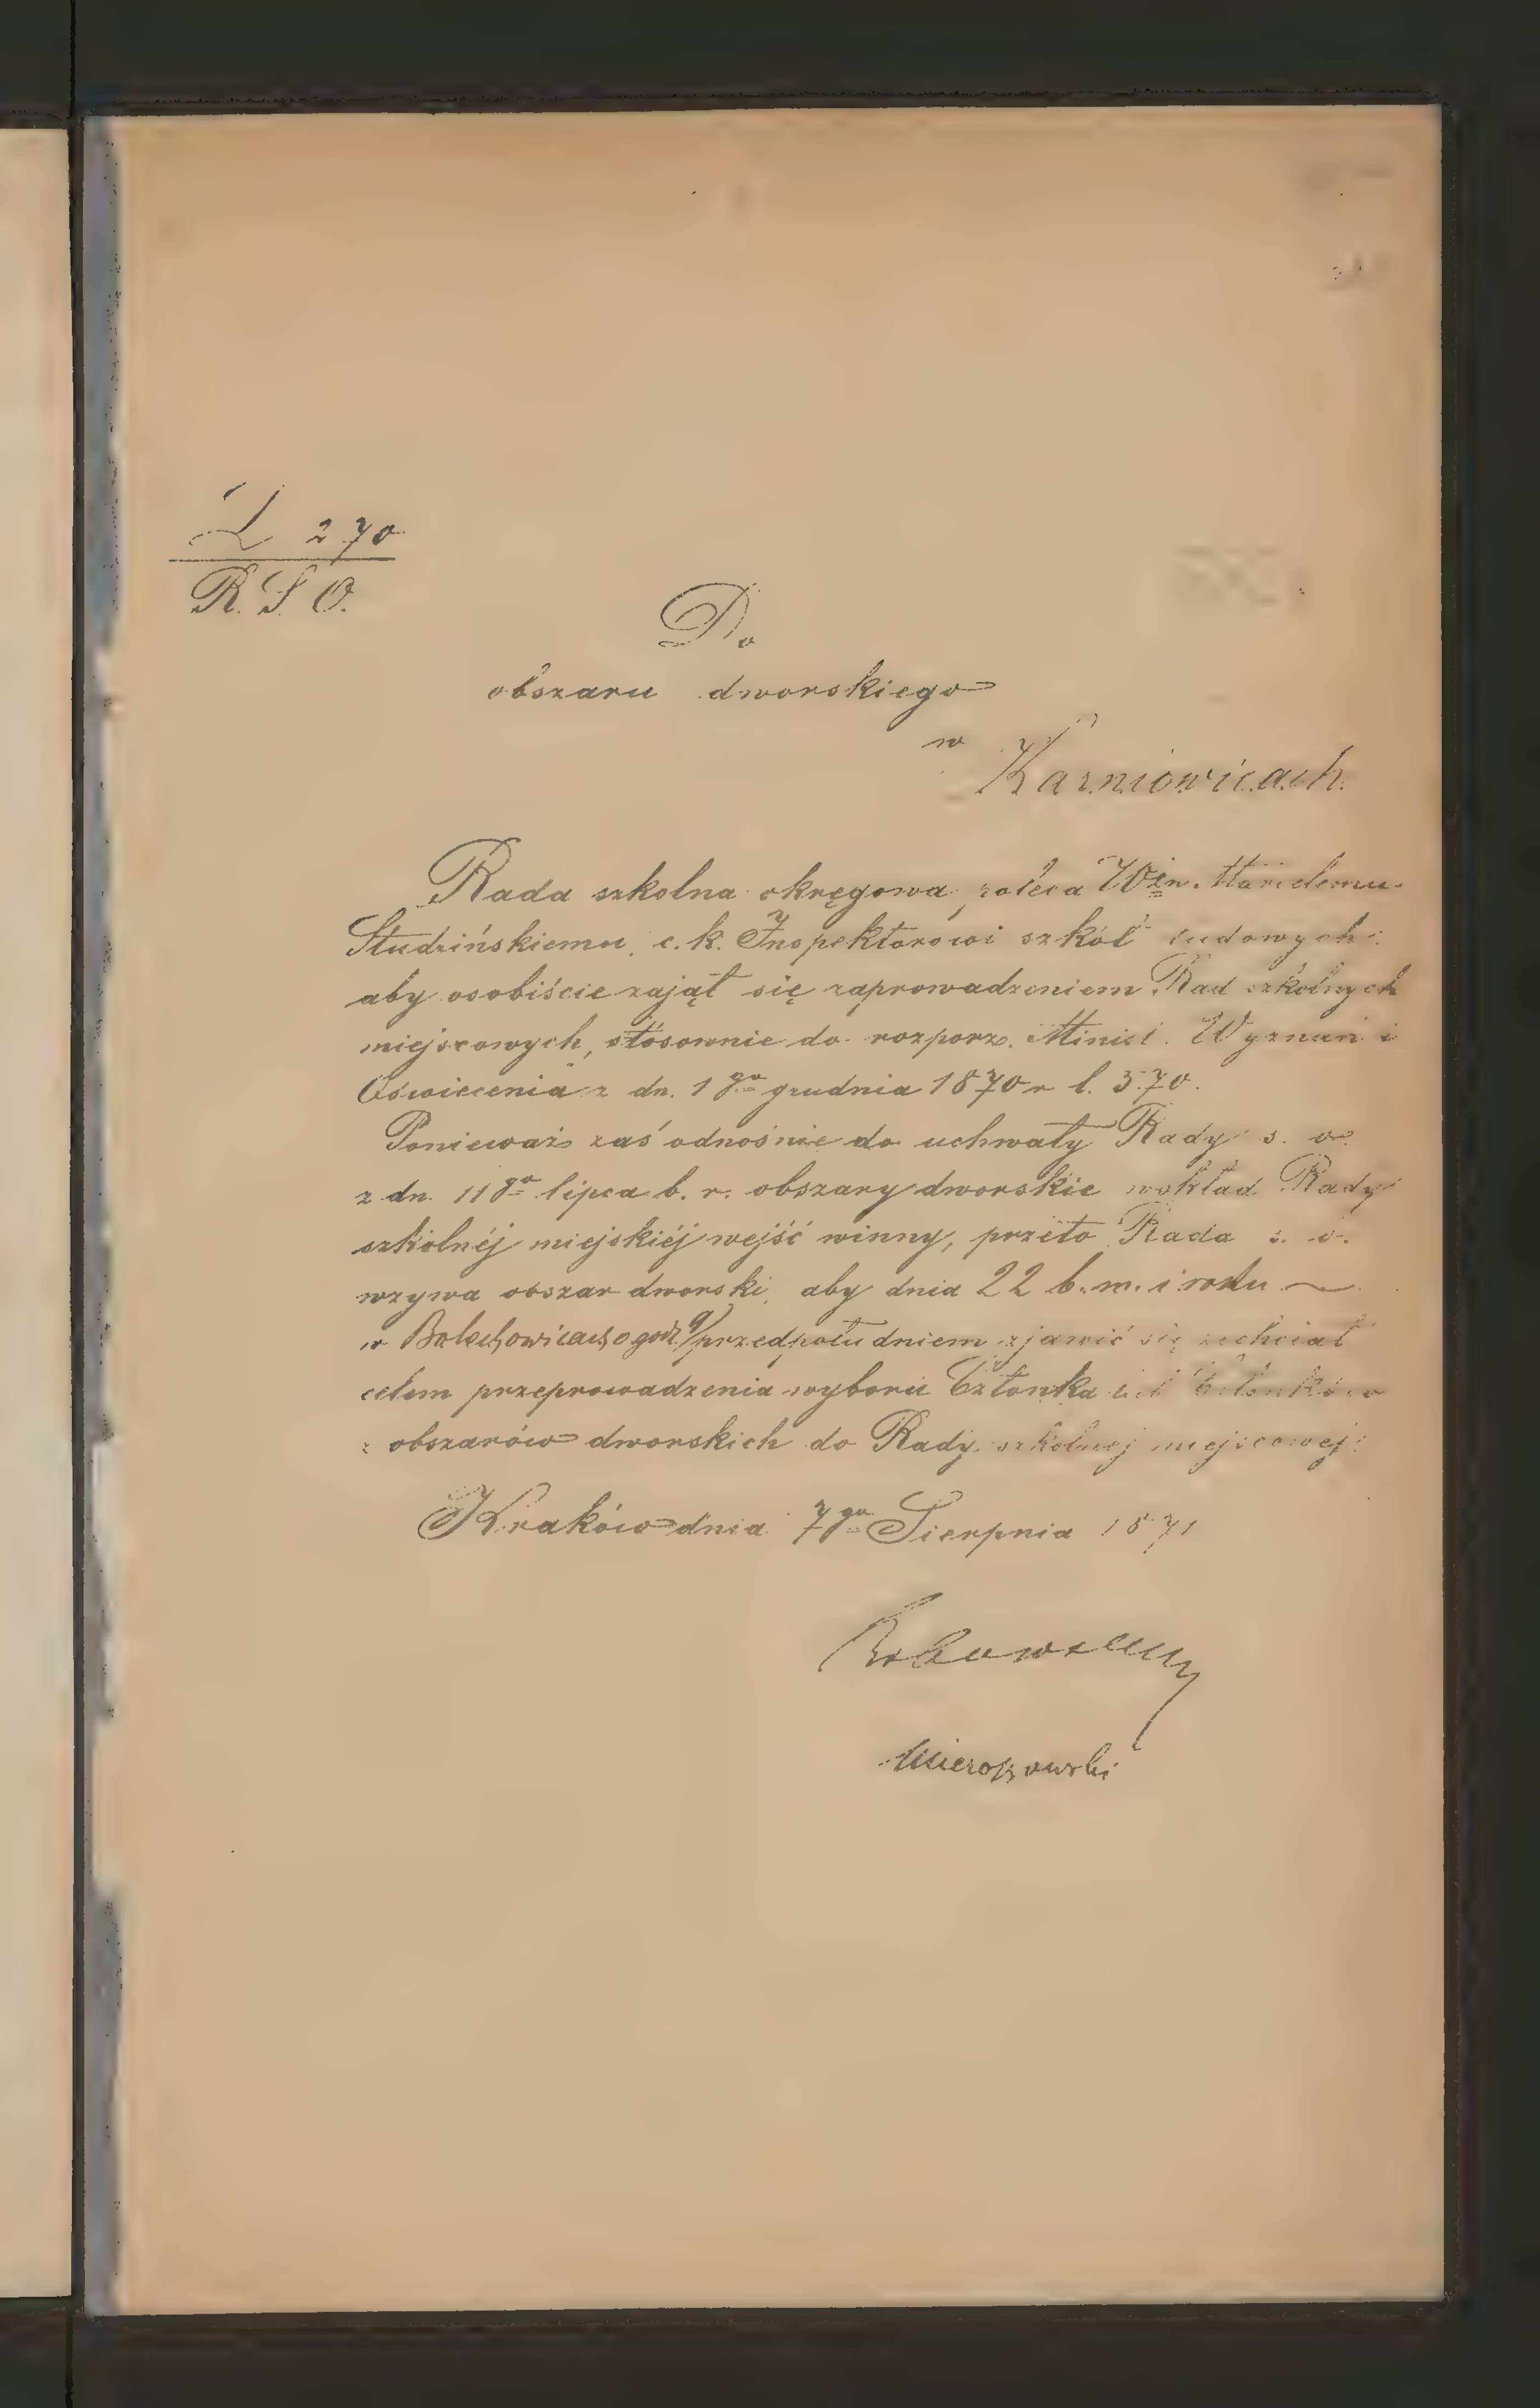 L 270
R. S. O.
Do
obszaru dworskiego
w
Karniowicach.
Rada szkolna okręgowa, poleca Win.
Studzińskiemu, c. k. Inspektorowi szkół ludowych
aby osobiście zajął się zaprowadzeniem Rad szkolnych
miejscowych, stósownie do rozporz. Minist. Wyznań i
Oświecenia z dn. 1go grudnia 1870 r l. 370.
Ponieważ zaś odnośnie do uchwały Rady s. o.
z dn. 11go lipca b. r. obszary dworskie wskład Rady
szkolnéj miejskiéj wejść winny, przeto Rada s. o.
wzywa obszar dworski, aby dnia 22 b. m. i roku
w Bolechowicach o godz. 9/ przedpołudniem zjawić się zechciał
celem przeprowadzenia wyboru Członka Członków
z obszarów dworskich do Rady szkolnej miejscowej.
Kraków dnia 7go Sierpnia 1871
Mieroszowski